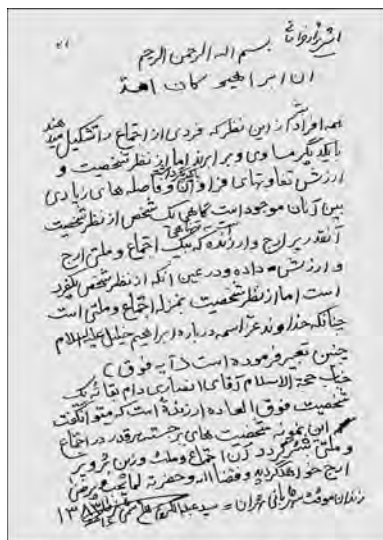 بسم الله الرحمن الرحیم
ان ابراهیم کان امة
همه افراد از این نظر که فردی از اجتماع را تشکیل میدهند
با یکدیگر مساوی و برابرند اما از نظر شخصیت و
ارزش تفاوتهای فراوان و فاصله های زیادی
بین آنان موجود است گاهی یک شخص از نظر شخصیت
آنقدر پر ارج و ارزنده که بیک اجتماع و ملتی ارج
و ارزش داده و در عین آنکه از نظر شخص یکفرد
است اما از نظر شخصیت بمنزله اجتماع و ملتی است
چنانکه خداوند عز اسمه درباره ابراهیم خلیل علیه السلام
چنین تعبیر فرموده است (آیه فوق)
جناب حجة الاسلام آقای انصاری دام بقائه یک
شخصیت فوق العاده ارزنده است که میتوان گفت
این نمونه شخصیت های برجسته هر قدر در اجتماع
و ملتی بیشتر گردد آن اجتماع و ملت وزین تر و پر
ارج خواهد گردید وفقنا الله وحضرته لما یحب و یرضی
زندان موقت شهربانی تهران = سید عبدالکریم هاشمی ۱۳۸۳